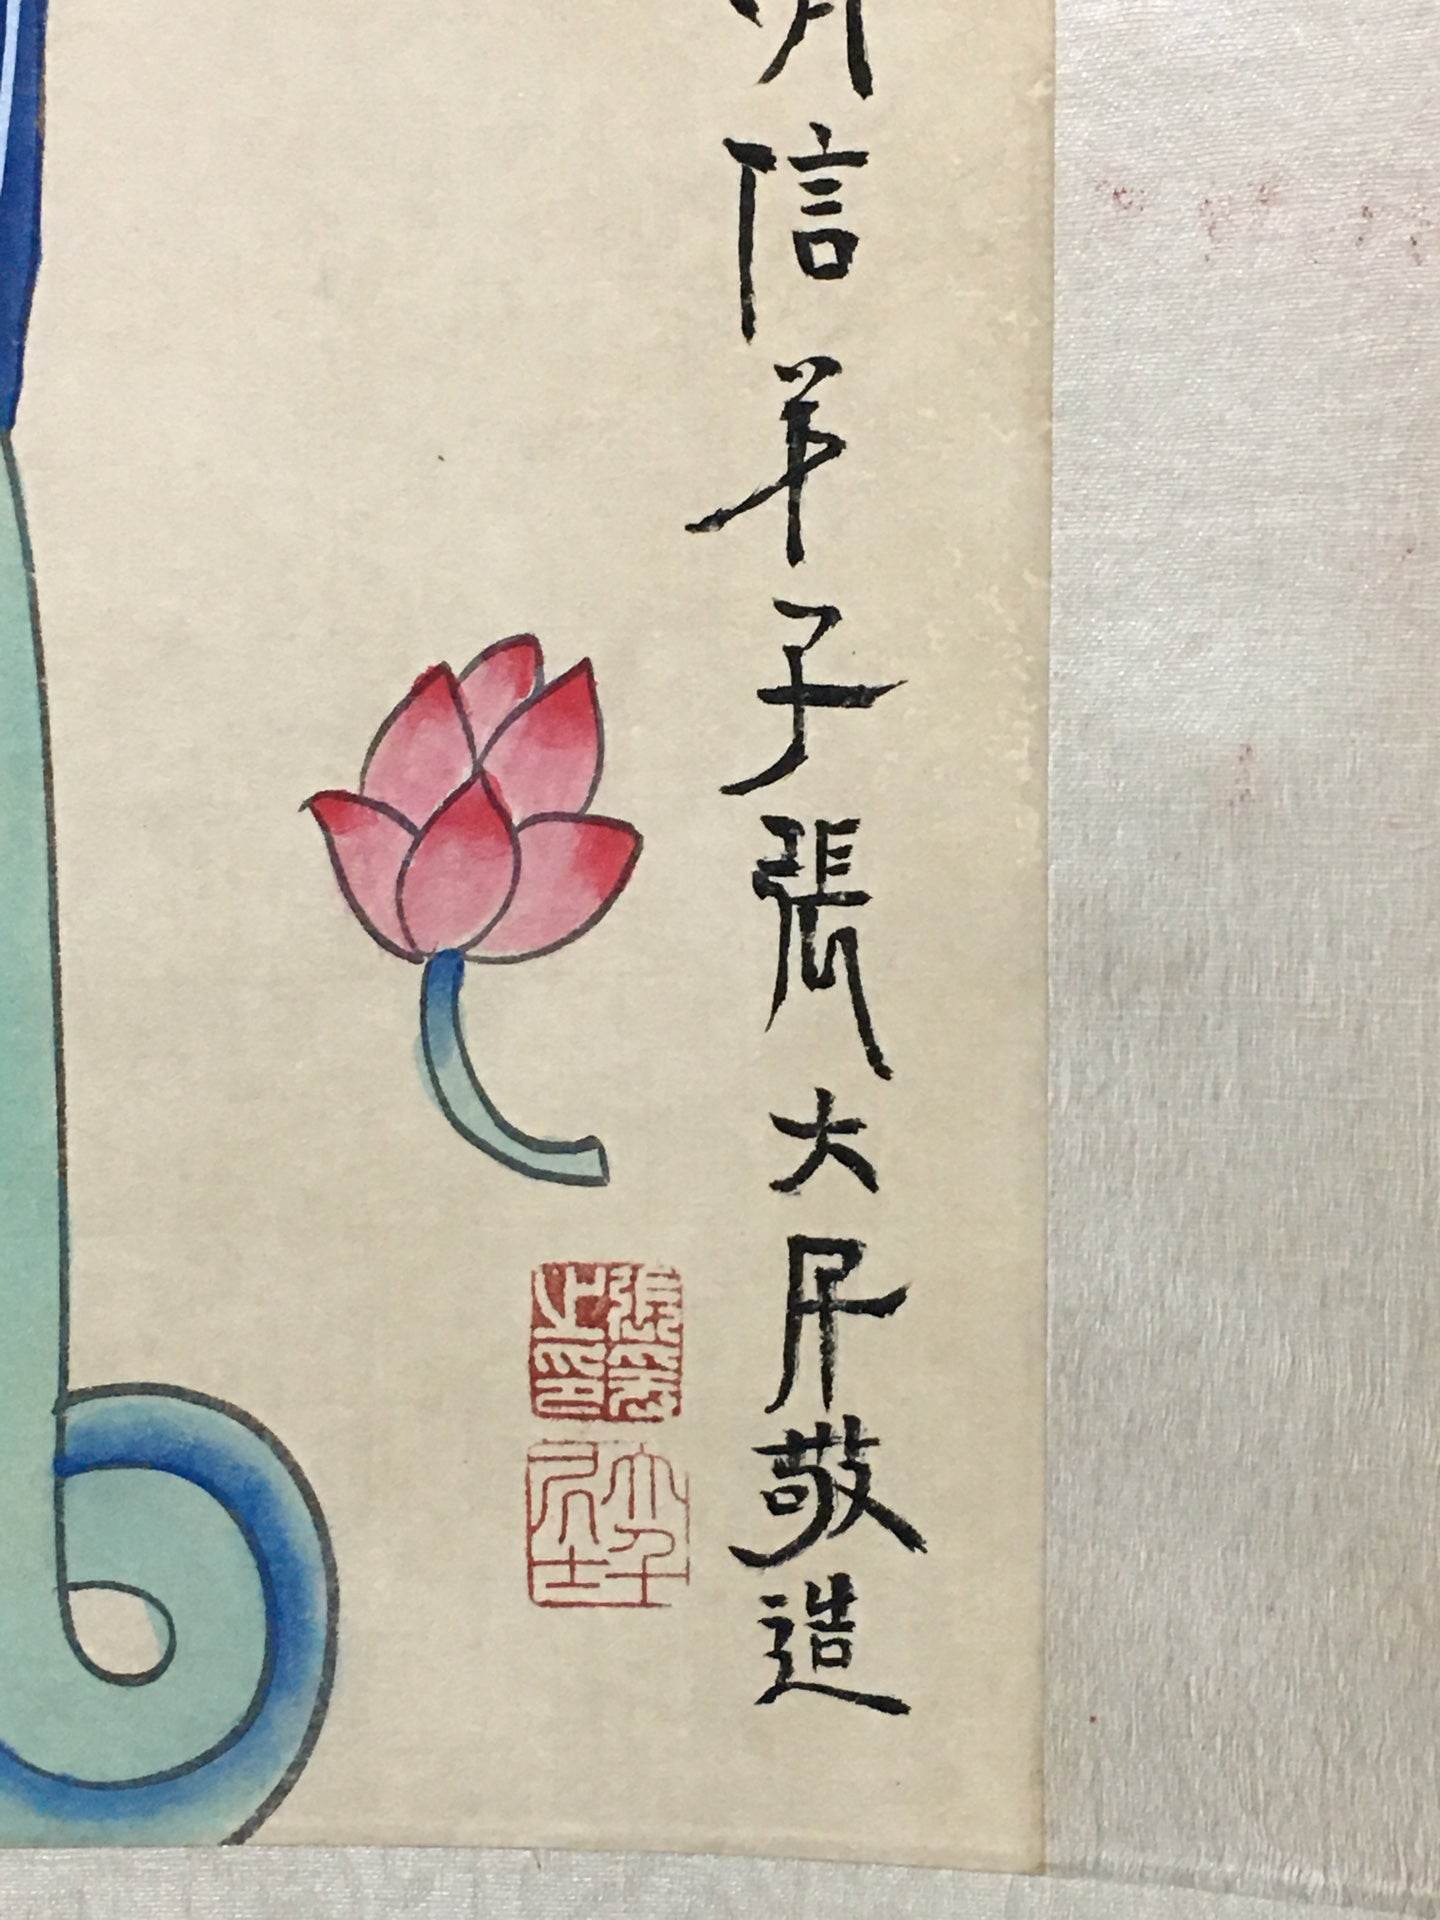 信弟子張大千敬造
張爰之印
大千居士